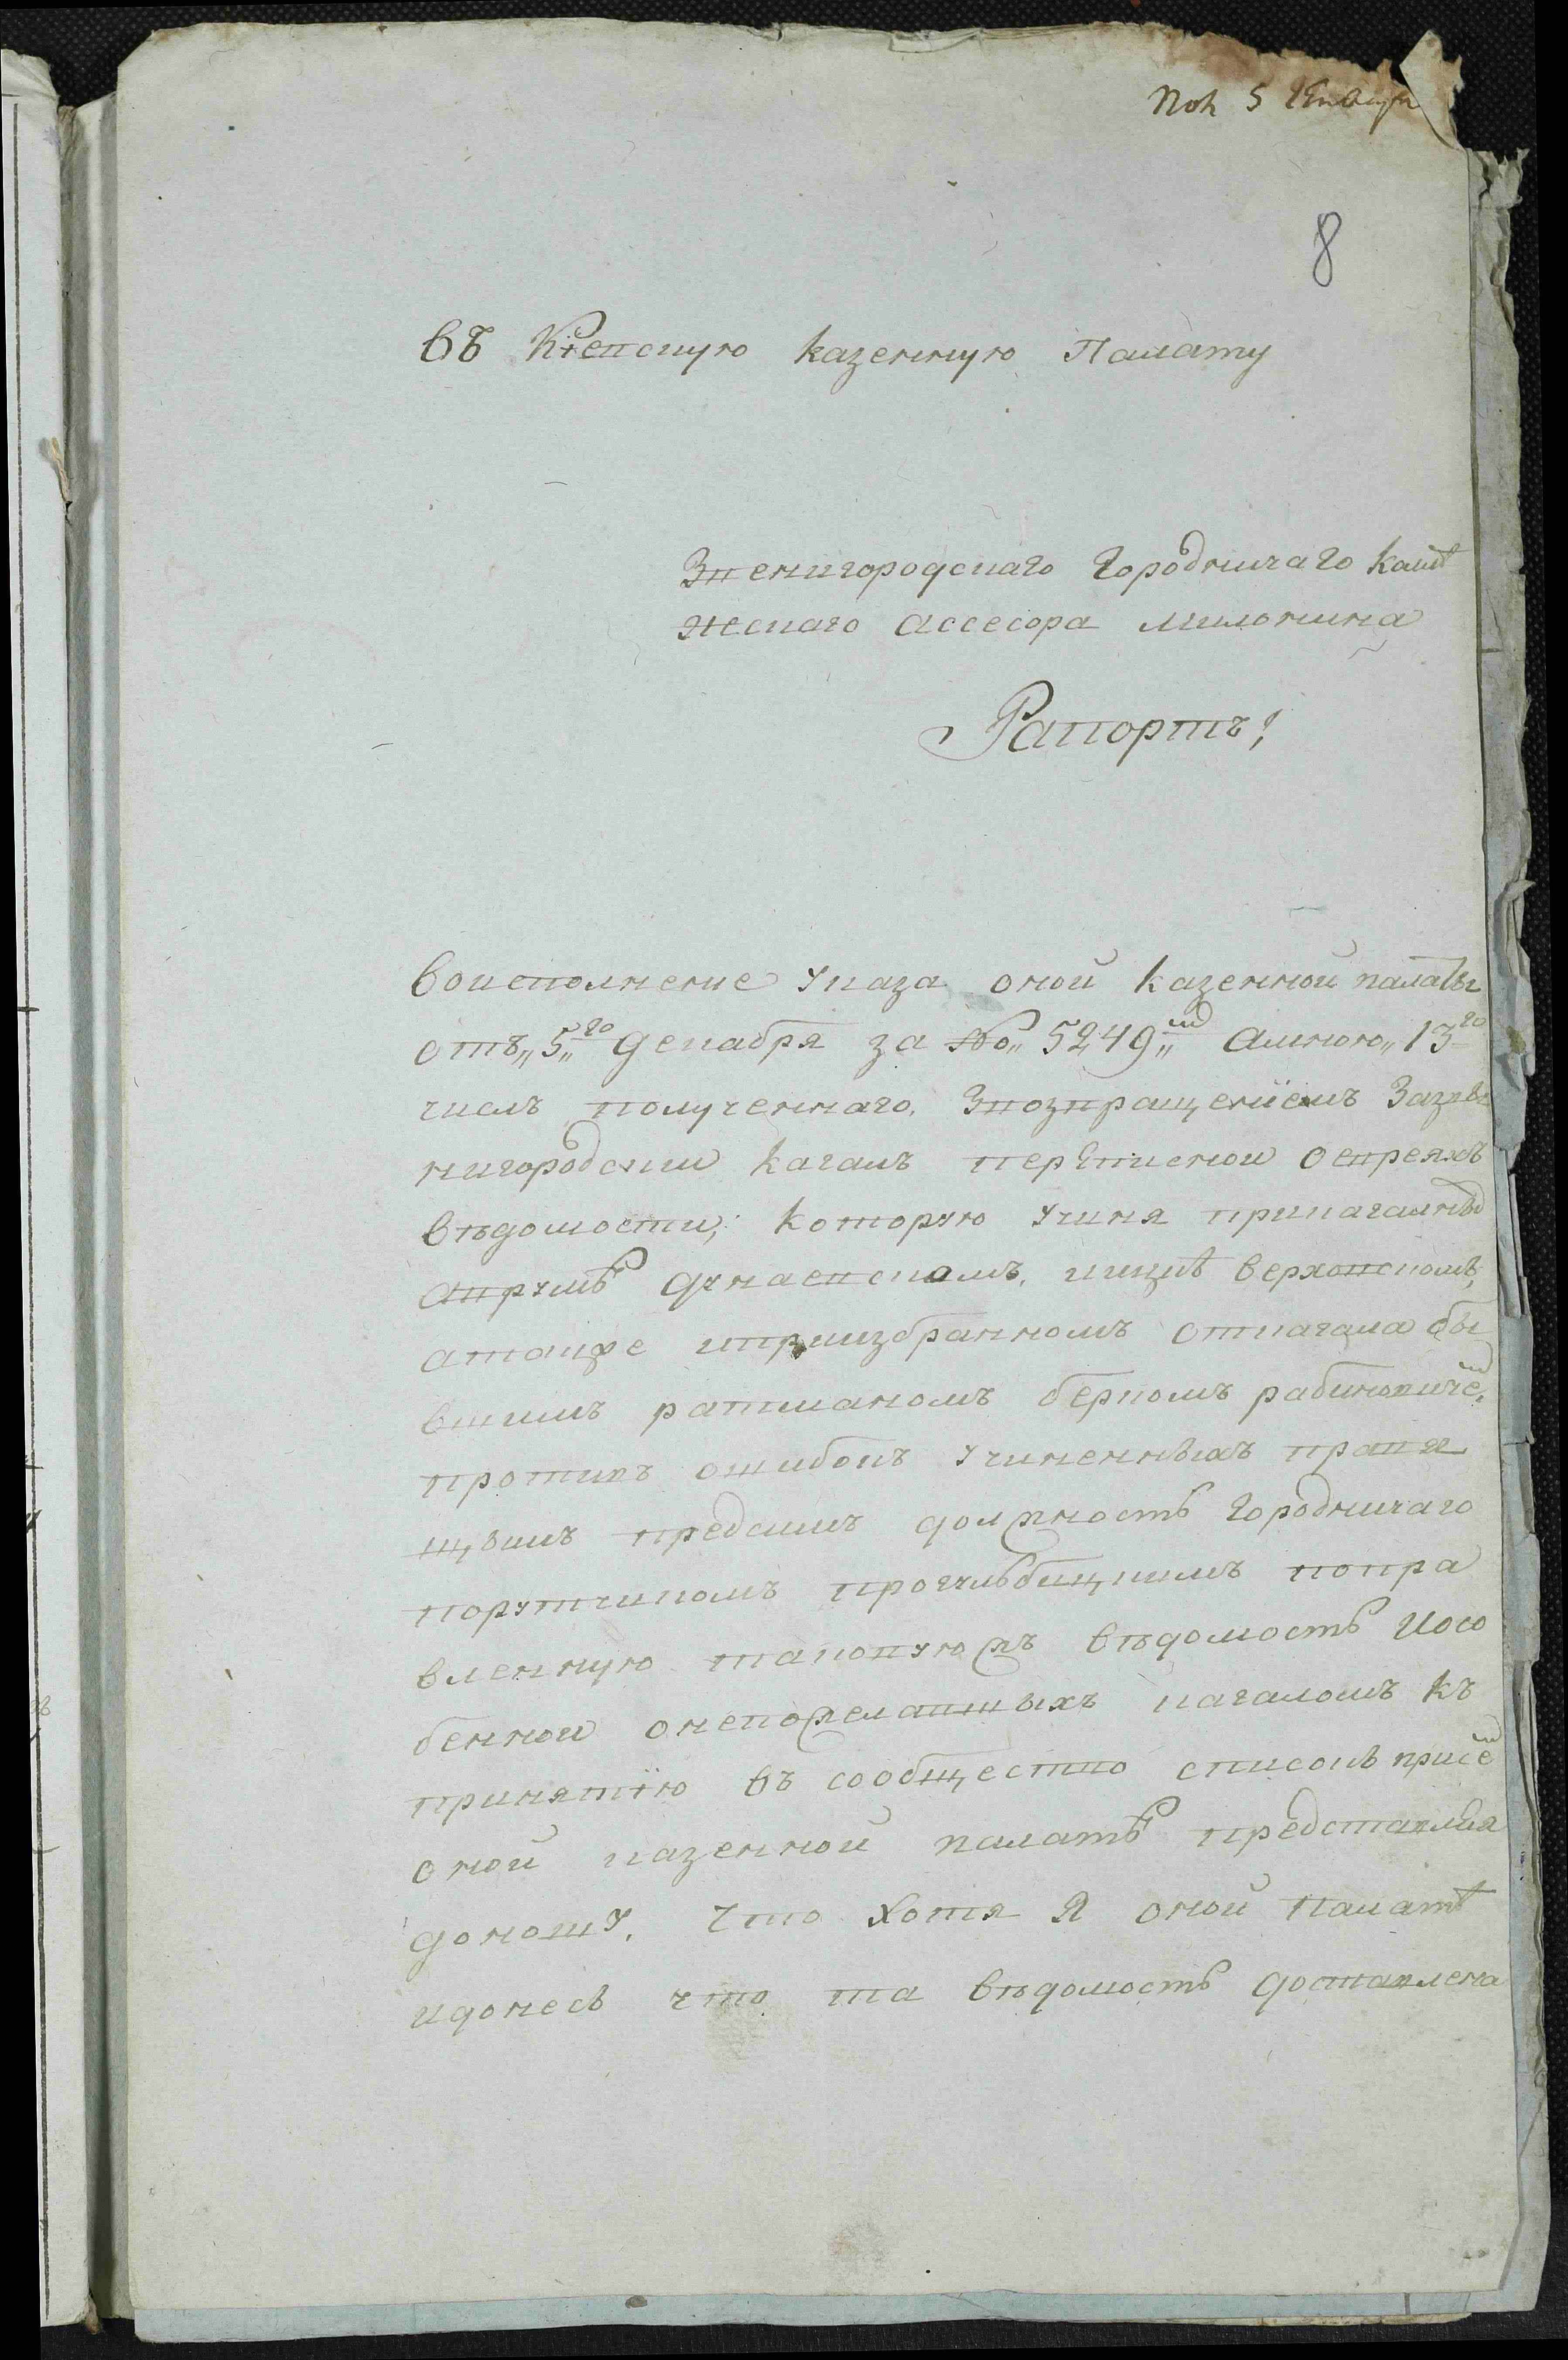 Пол 5 Генваря
8
въ Кіевскую казенную Палату
Звенигородскаго Городничаго Колѣ
жескаго Ассесора Милонина
Рапортъ!
воисполнение указа оной казенной палаты
отъ„ 5„го Декабря за №„ 5249„м Амною„ 13го
числъ полученнаго, Звозвращениемъ Зазве
нигородскии кагалъ перѣписнои оевреяхъ
вѣдомости; которую учиня прикагалнѣ
Авружѣ Дунаевскомъ, ицѣ верховскомъ,
атакже иприизбранномъ откагала бы
вшимъ ратманомъ беркомъ рабиновиче,м
противъ ошибокъ учиненныхъ правя
щимъ предсимъ должность Городничаго
порутчикомъ попра
вленную таковуюжъ вѣдомость Иосо
бенной онепожелавшыхъ кагаломъ къ
принятїю въ сообщество списокъ присе,м
оной казенной палатѣ представля
доношу, Что Хотя Я оной Палатѣ
идонесъ что та вѣдомость доставлена